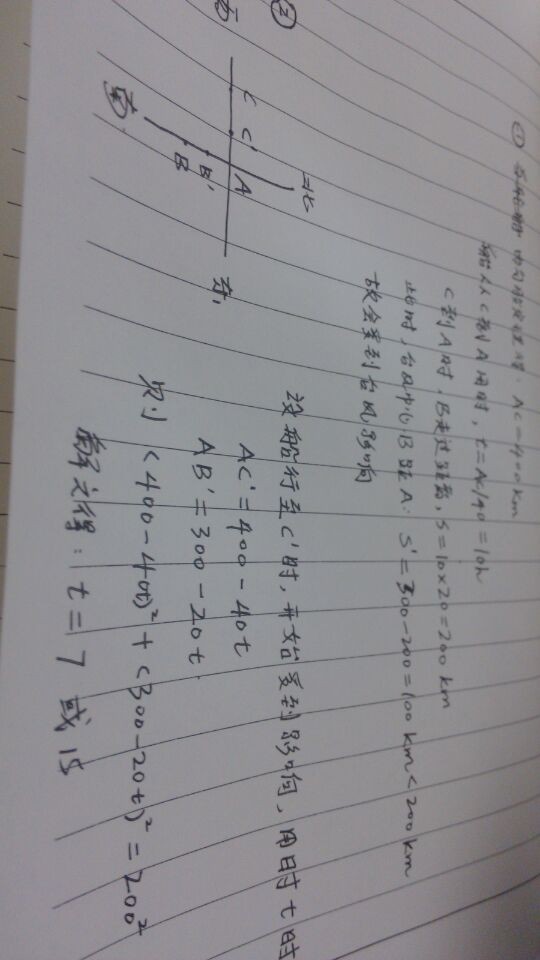 ① 由勾股定理得. AC=400km
船从C到A用时, t=AC/40=10h
C到A时, B走过距离, S=10×20=200km
此时, 台风中心B距A: S'=300-200=100km<200km
故会受到台风影响
②
西 C C' A 东
北
B'
B
南
设船行至C'时, 开始受到影响, 用时t时
AC'=400-40t
AB'=300-20t
则 (400-40t)²+(300-20t)²=200²
解之得: t=7 或 15